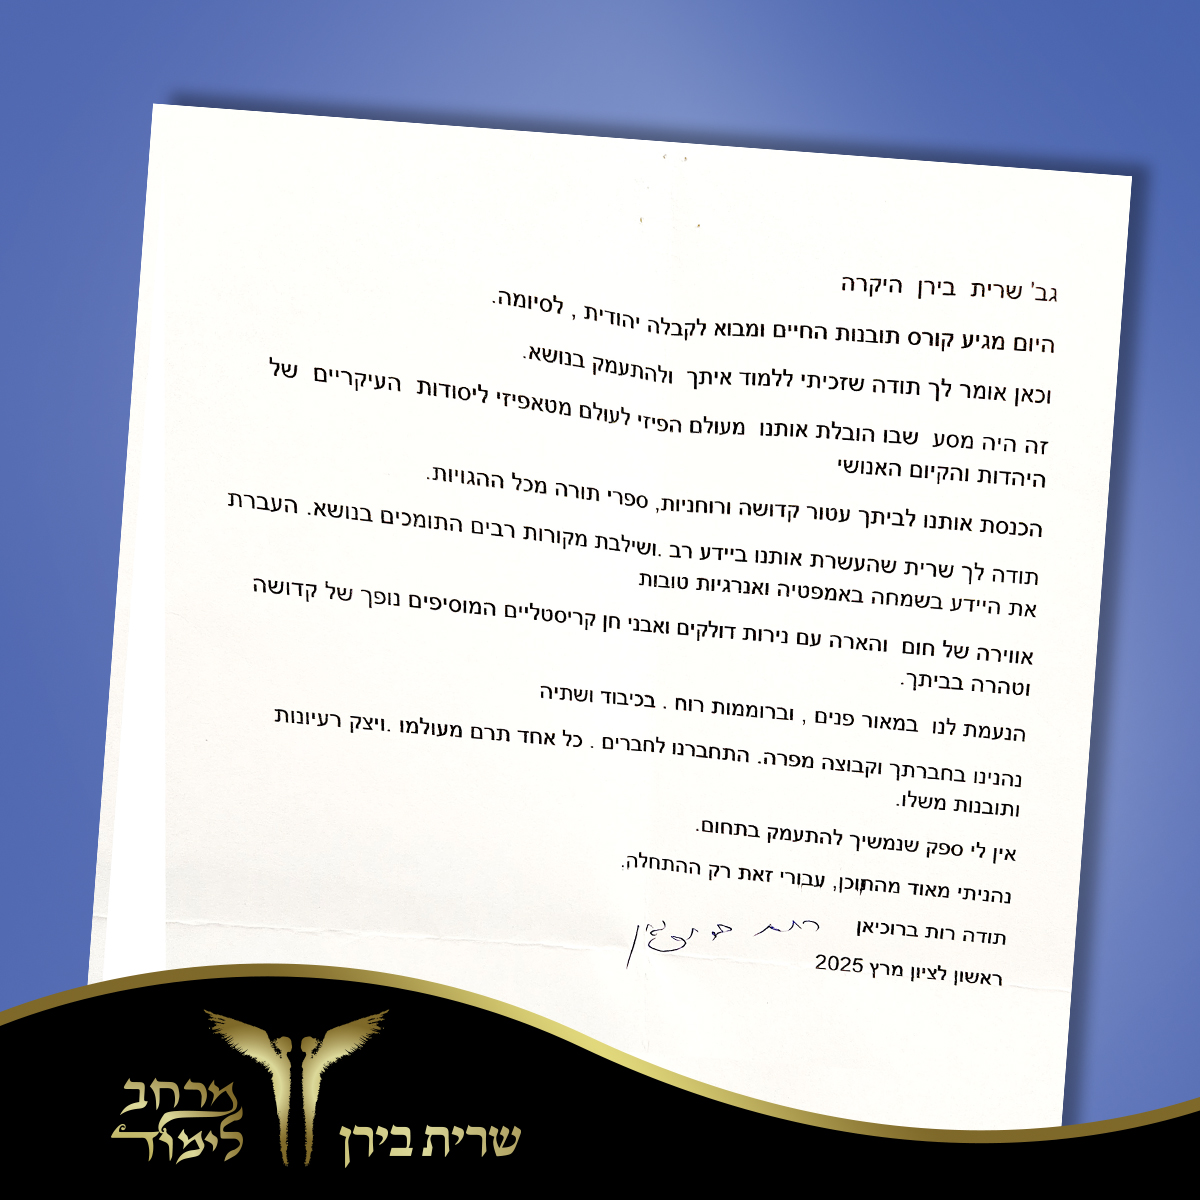 גב' שרית בירן היקרה
היום מגיע קורס תובנות החיים ומבוא לקבלה יהודית , לסיומה.
וכאן אומר לך תודה שזכיתי ללמוד איתך ולהתעמק בנושא.
זה היה מסע שבו הובלת אותנו מעולם הפיזי לעולם מטאפיזי ליסודות העיקריים של
היהדות והקיום האנושי
הכנסת אותנו לביתך עטור קדושה ורוחניות, ספרי תורה מכל ההגויות.
תודה לך שרית שהעשרת אותנו ביידע רב .ושילבת מקורות רבים התומכים בנושא. העברת
את היידע בשמחה באמפטיה ואנרגיות טובות
אווירה של חום והארה עם נירות דולקים ואבני חן קריסטליים המוסיפים נופך של קדושה
וטהרה בביתך.
הנעמת לנו במאור פנים , וברוממות רוח . בכיבוד ושתיה
נהנינו בחברתך וקבוצה מפרה. התחברנו לחברים . כל אחד תרם מעולמו .ויצק רעיונות
ותובנות משלו.
אין לי ספק שנמשיך להתעמק בתחום.
נהניתי מאוד מהתוכן, עבורי זאת רק ההתחלה.
תודה רות ברוכיאן
ראשון לציון מרץ 2025
מרחב
לימוד
שרית בירן